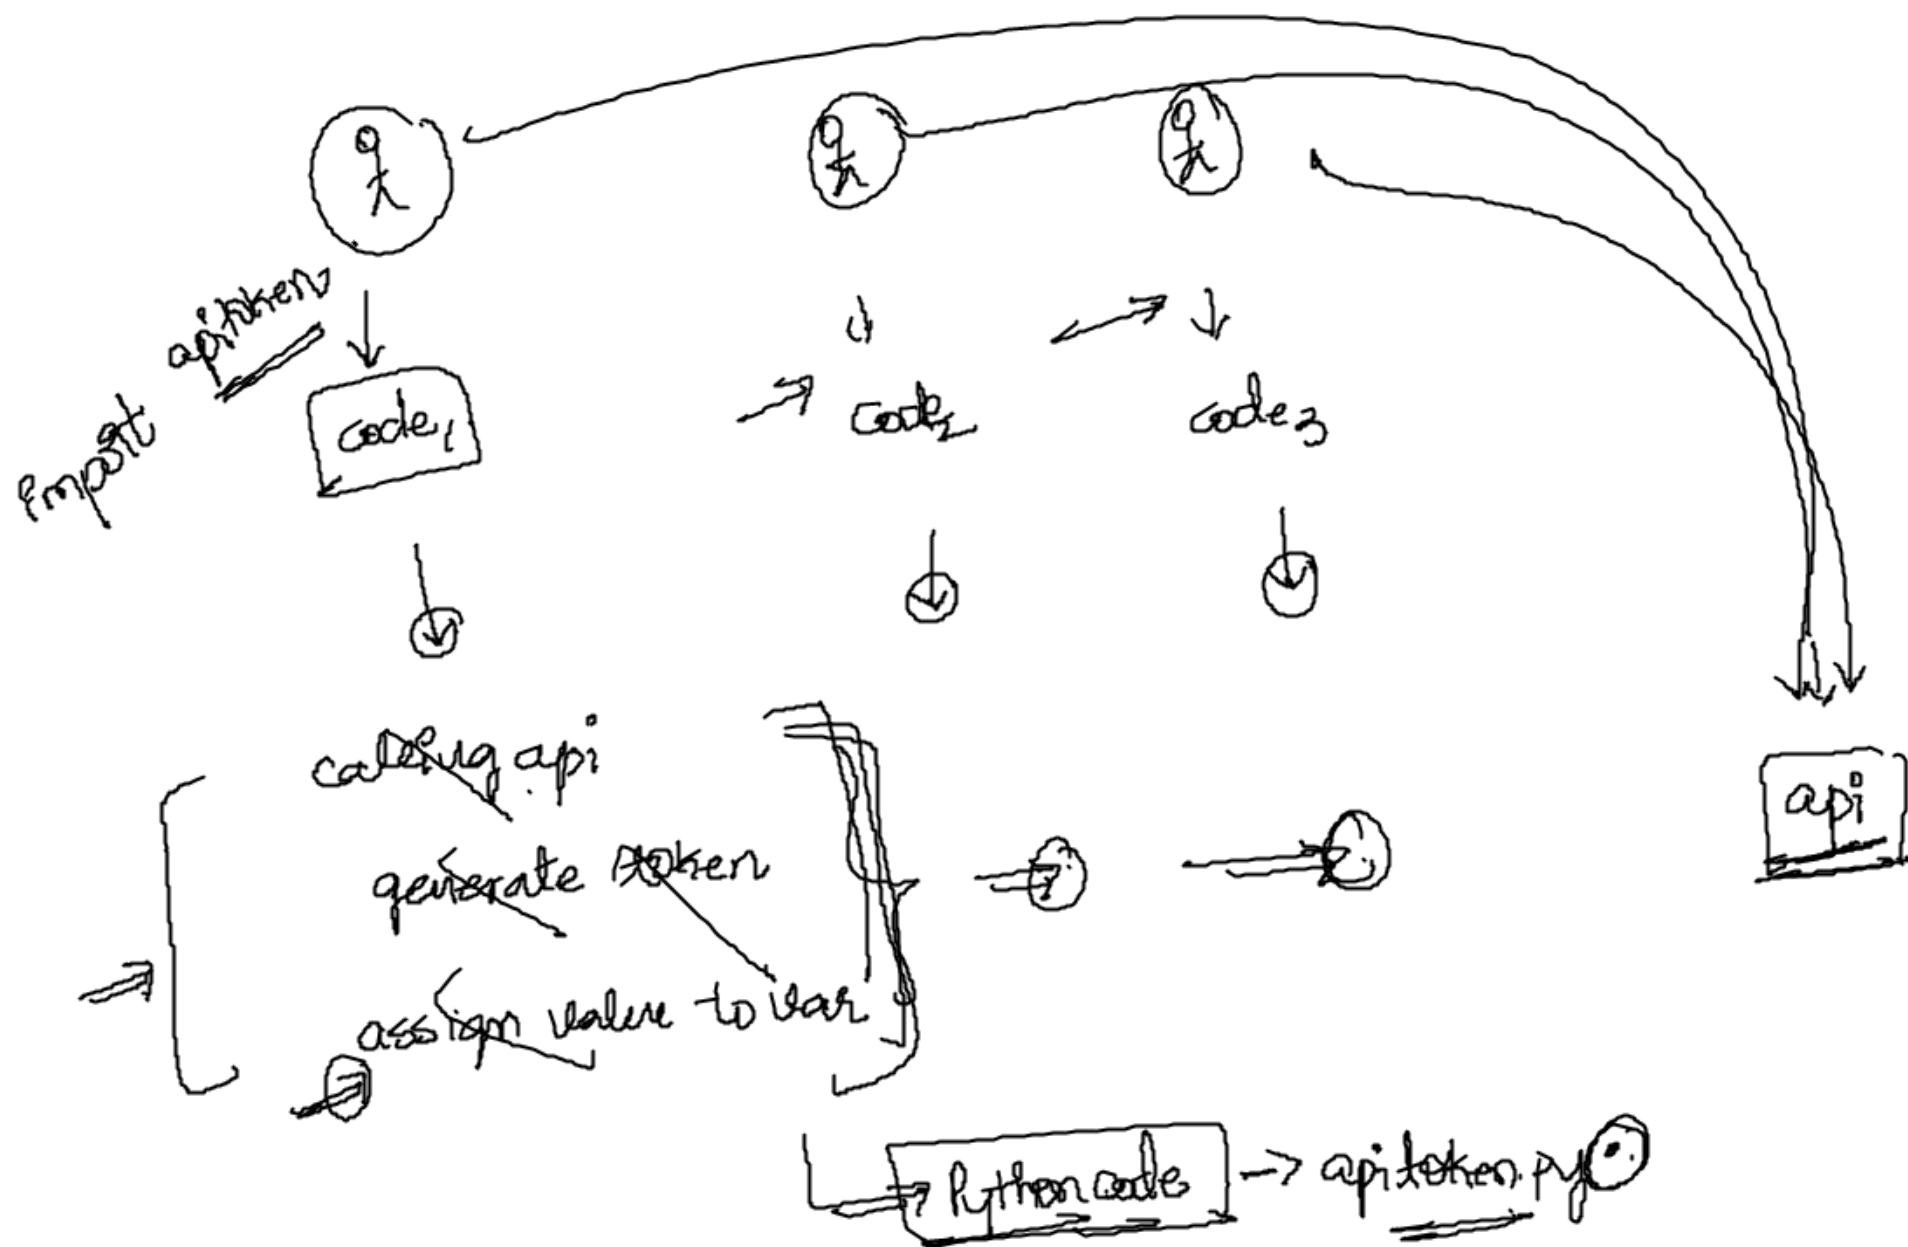 import apitoken
code1
code2
code3
calling api
generate token
assign value to var
api
Python code
apitoken.py